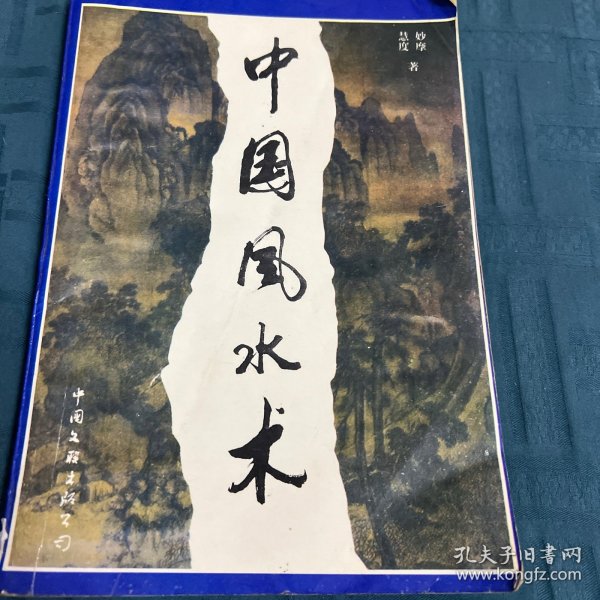 中国风水术
妙摩
慧度
著
中国文联出版公司
孔夫子旧书网
www.kongfz.com